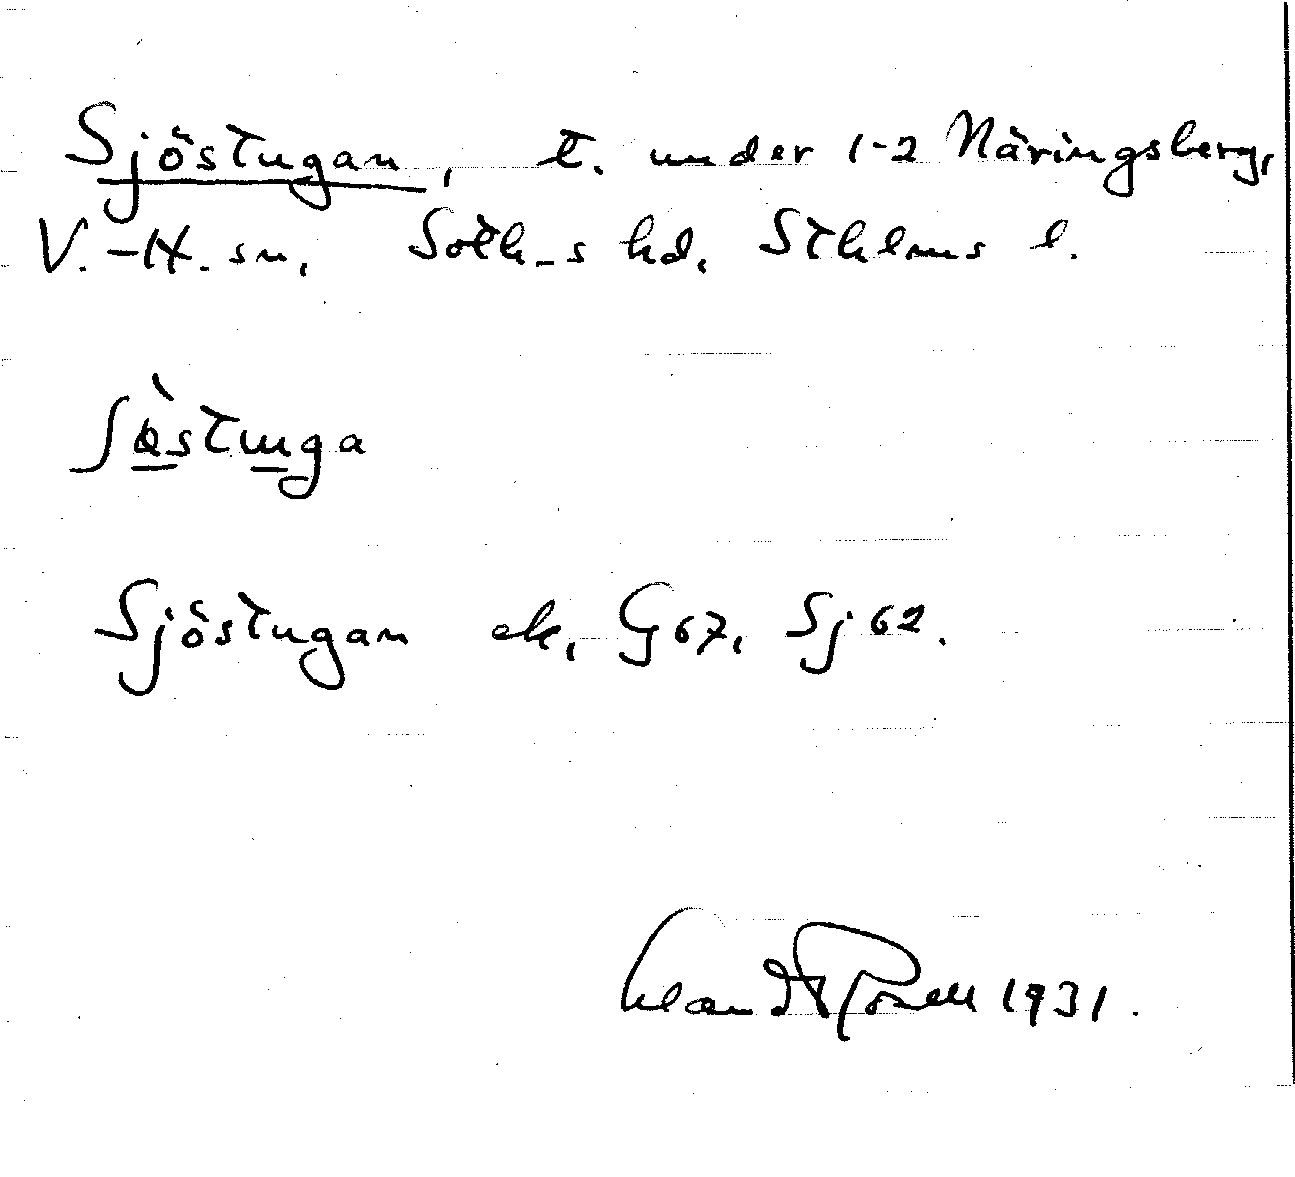 Sjöstugan, t. under 1-2 Näringsberg,
V.-H. sn, Soth-s hd, Sthlms l.
Sjöstugan ek, G 67, Sj 62.
1931.